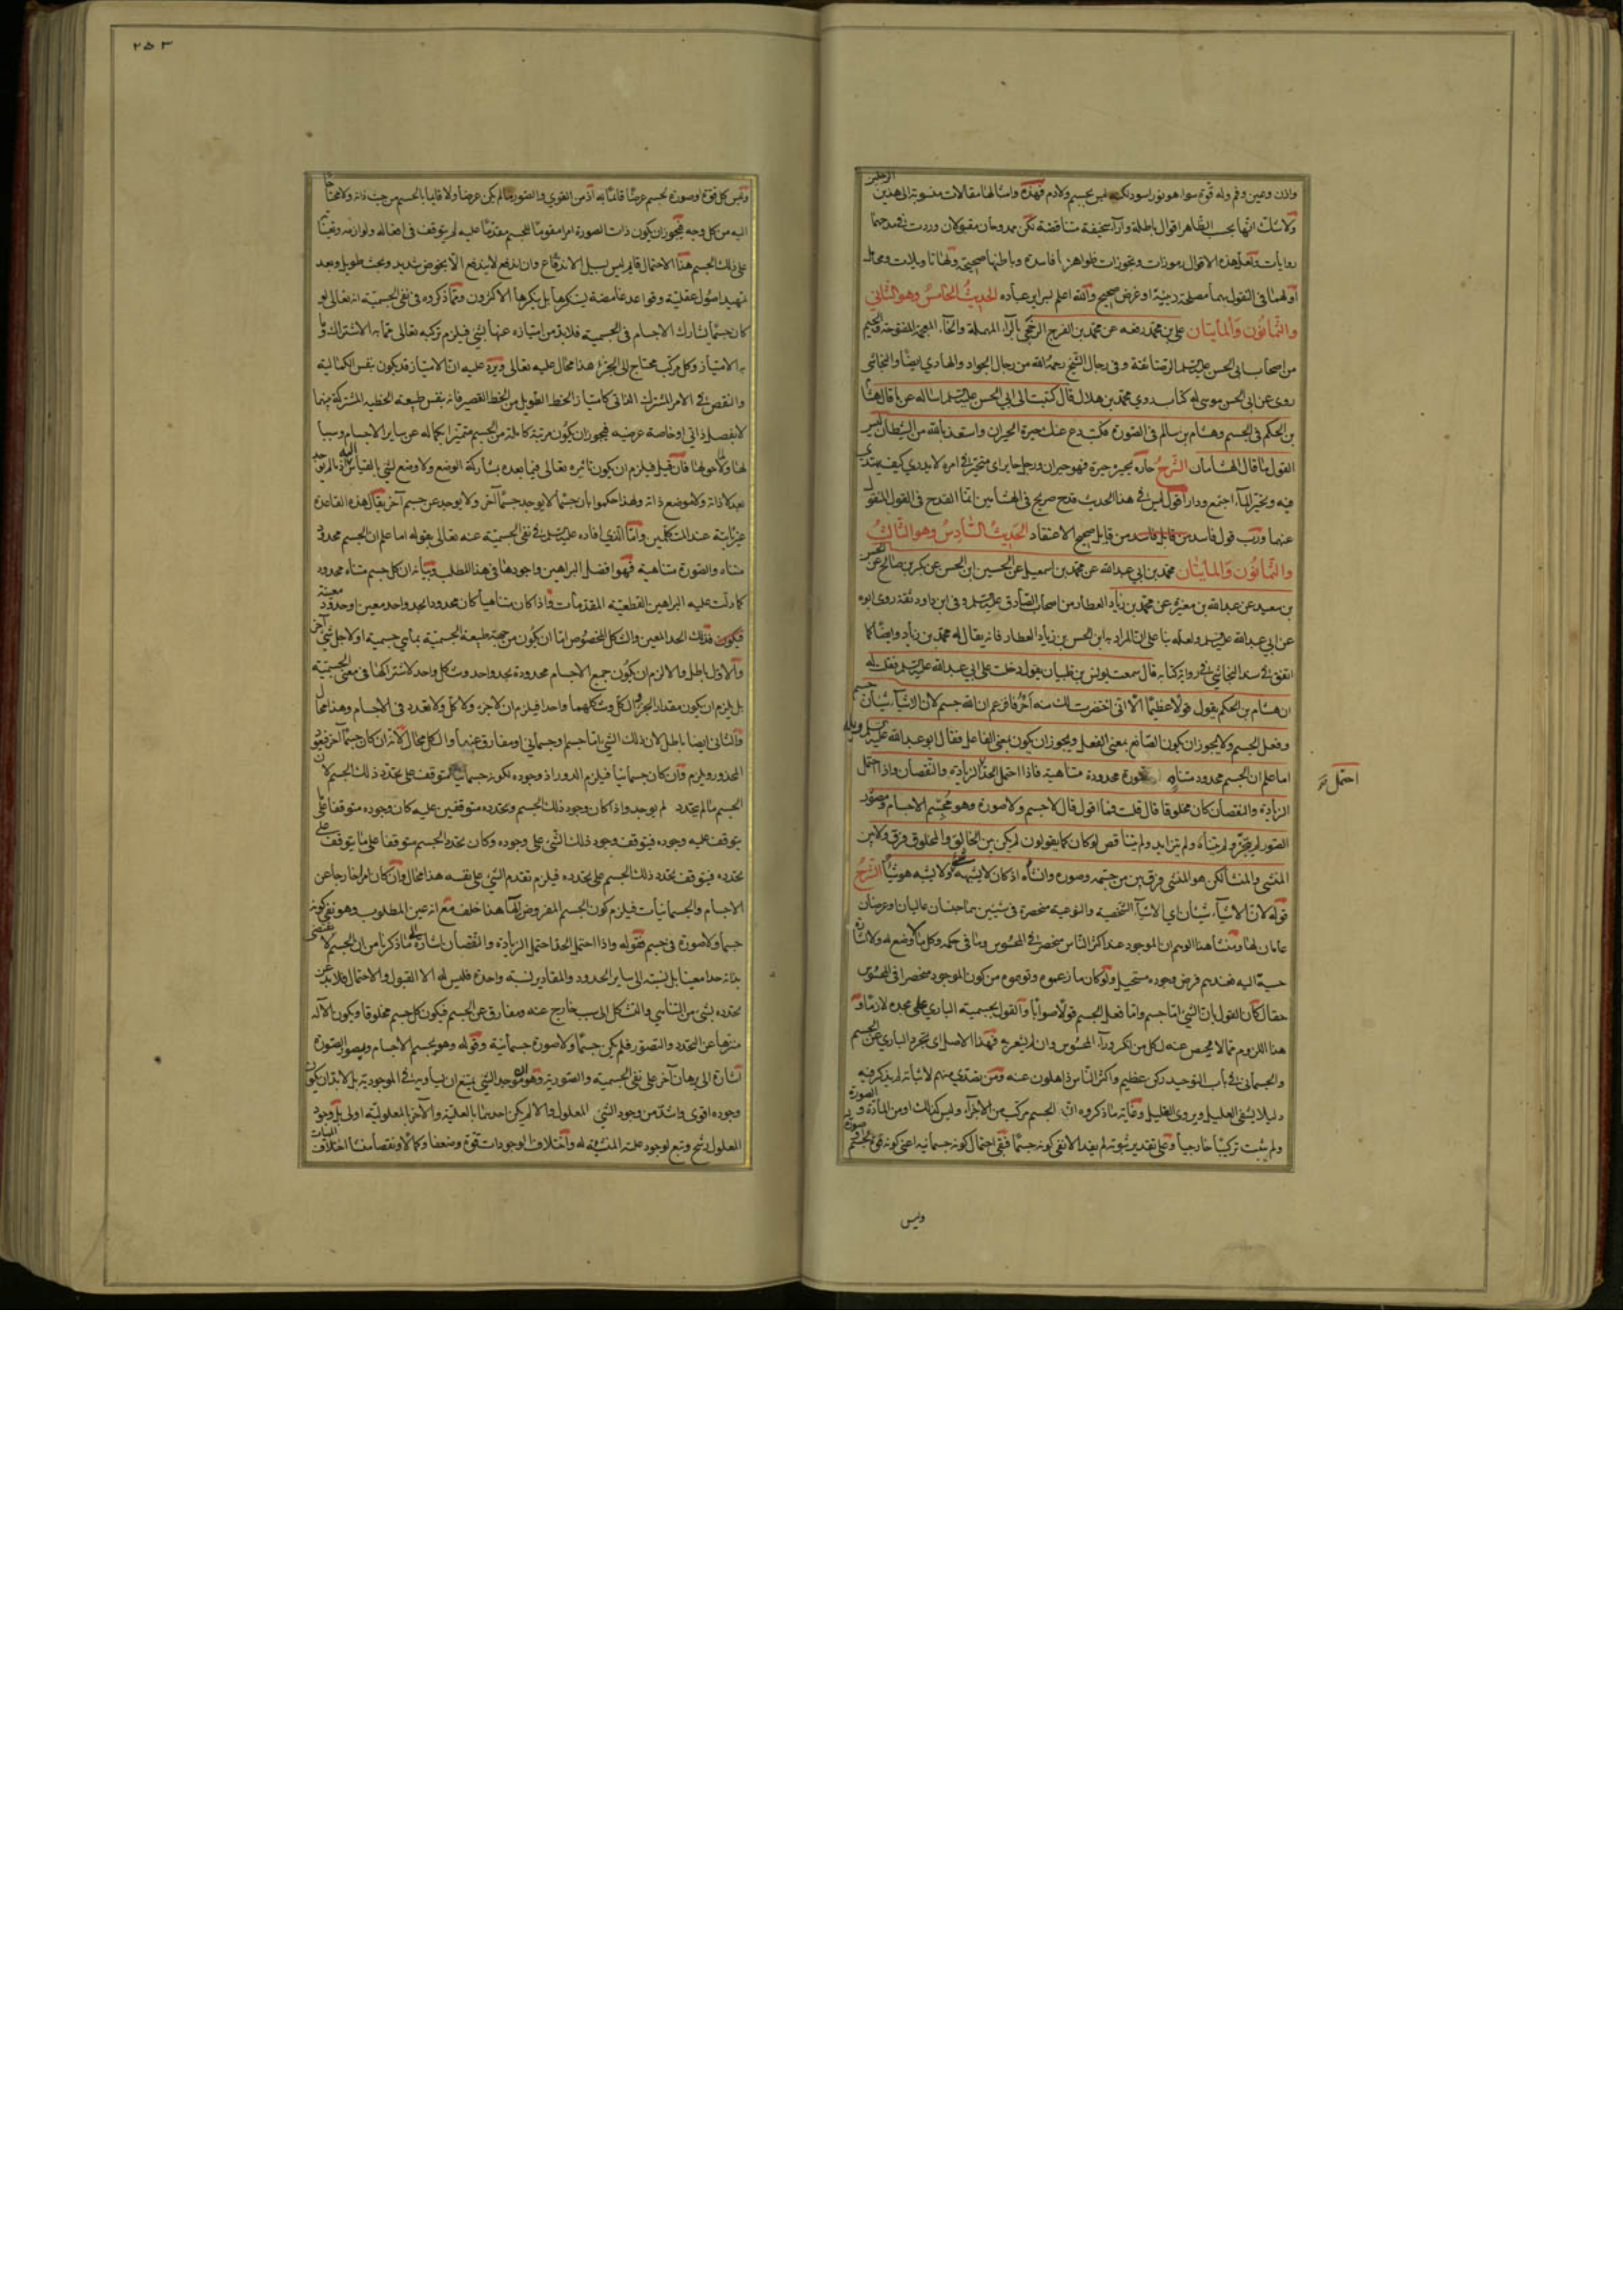 واذن وعين وفم وله وفرة سوداء هو نور اسود لكنه ليس بجسم ولا دم فهذه وامثالها مقالات منسوبة الى هذين الرجلين
ولا شك انها بحسب الظاهر اقوال باطلة وآراء سخيفة متناقضة لكن ممدوحان مقبولان وردت في مدحهما
روايات ولعل هذه الاقوال رموزات وتجوزات ظواهرها فاسدة وباطنها صحيحة ولها تاويلات ومحامل
او لهما في التفوه بها مصلحة دينية او غرض صحيح والله اعلم بسراير عباده الحديث الخامس وهو الثاني
والثمانون والمايتان علي بن محمد رفعه عن محمد بن الفرج الرخجي بالراء المهملة والخاء المعجمة المفتوحة والجيم
من اصحاب ابي الحسن عليه السلم الرضا ثقة وفي رجال الشيخ رحمه الله من رجال الجواد والهادي ايضا والنجاشي
روى عن ابي الحسن موسى له كتاب روى محمد بن هلال قال كتبت الى ابي الحسن عليه السلم اساله عما قال هشام
بن الحكم في الجسم وهشام بن سالم في الصورة فكتب دع عنك حيرة الحيران واستعذ بالله من الشيطان ليس
القول ما قال الهشامان الشرح حار يحير حيرة فهو حيران ورجل حاير اي متحير في امره لا يدري كيف يهتدي
فيه وتحير الماء اجتمع ودار اقول ليس في هذا الحديث قدح صريح في الهشامين انما القدح في القول المنقول
عنهما ورب قول فاسد من قايل صحيح الاعتقاد الحديث السادس وهو الثالث
والثمانون والمايتان محمد بن ابي عبد الله عن محمد بن اسمعيل عن الحسين ابن الحسن عن بكر بن صالح عن الحسن
بن سعيد عن عبد الله بن مغيرة عن محمد بن زياد العطار من اصحاب الصادق عليه السلم وفي ابن داود ثقة روى ابوه
عن ابي عبد الله عليه السلم ولعله بنا على ان المراد به ابن الحسن بن زياد العطار فانه يقال له محمد بن زياد وايضا كما
اتفق في سند النجاشي في رواية كتابه قال سمعت يونس بن ظبيان يقول دخلت على ابي عبد الله عليه السلم فقلت له
ان هشام بن الحكم يقول قولا عظيما الا اني اختصرت لك منه احرفا فزعم ان الله جسم لان الاشياء شيئان جسم
وفعل الجسم ولا يجوز ان يكون الصانع بمعنى الفعل ويجوز ان يكون بمعنى الفاعل فقال ابو عبد الله عليه السلم ويله
اما علم ان الجسم محدود متناه والصورة محدودة متناهية فاذا احتمل الحد الزيادة والنقصان واذا احتمل
احتمل
الزيادة والنقصان كان مخلوقا قال قلت فما اقول قال لا جسم ولا صورة وهو مجسم الاجسام ومصور
الصور لم يتجز ولم يتناه ولم يتزايد ولم يتناقص لو كان كما يقولون لم يكن بين الخالق والمخلوق فرق ولا بين
المنشي والمنشا لكن هو المنشي فرق بين من جسمه وصوره وانشاه اذ كان لا يشبهه شيء ولا يشبه هو شيئا الشرح
قوله لان الاشياء شيئان اي الاشياء الشخصية والنوعية منحصرة في شيئين هما جنسان عاليان او عرضان
عامان لها ومنشا هذا الوهم ان الموجود عند اكثر الناس منحصر في المحسوس وما في حكمه وكل ما لا وضع له ولا اشارة
حسية اليه فعندهم فرض وجوده مستحيل ولو كان ما زعموه وتوهموه من كون الموجود منحصرا في المحسوس
حقا لكان القول بان الشيء اما جسم واما فعل الجسم قولا صوابا والقول بجسمية الباري على مجده لازما و
هذا اللزوم مما لا محيص عنه لكل من انكر وراء المحسوس وان لم يشعر به فهذا الاصل اي تجرد الباري عن الجسم
والجسماني في باب التوحيد ركن عظيم واكثر الناس ذاهلون عنه ومن تصدى منهم لاثباته لم يذكر فيه
دليلا يشفي العليل ويروي الغليل وغاية ما ذكروه ان الجسم مركب من الاجزاء وليس كذلك او من المادة والصورة
ولم يثبت تركيبا خارجيا وعلى تقدير ثبوته لم يفد الا نفي كونه جسما فبقي احتمال كونه صورة جسمانية اعني كونه قوة لجسم
وليس
٢٥٣
وليس كل قوة او صورة لجسم عرضا قائما به اذ من القوى والصور ما لم يكن عرضا ولا قايما بالجسم من حيث ذاته ولا محتاجا
اليه من كل وجه فيجوز ان يكون ذات الصورة امرا مقوما للجسم مقدما عليه لم يتوقف في افعاله ولوازمه وتعينا
على ذلك الجسم هذا الاحتمال قايم ليس سبيل الاندفاع وان اندفع لا يندفع الا بخوض شديد وبحث طويل وبعد
تمهيد اصول عقلية وقواعد غامضة ليتنكرها بل ينكرها الاكثرون ومما ذكروه في نفي الجسمية انه تعالى لو
كان جسما لشارك الاجسام في الجسمية فلا بد من امتيازه عنها بشيء فيلزم تركبه تعالى مما به الاشتراك وما
به الامتياز وكل مركب محتاج الى الجزء هذا محال عليه تعالى ويرد عليه ان الامتياز قد يكون بنفس الكمالية
والنقص في الامر المشترك الذاتي كامتياز الخط الطويل من الخط القصير فانه بنفس طبيعة الخطية المشتركة بينهما
لا بفصل ذاتي او خاصة عرضية فيجوز ان يكون مرتبة كاملة من الجسم متميزا بكماله عن ساير الاجسام وسببا
لها ولاحوالها فان قيل فيلزم ان يكون تاثيره تعالى فيما بعده بمشاركة الوضع ولا وضع لشيء بالقياس اليه اذ لم يوجد
بعد لا ذاته ولا موضع ذاته ولهذا حكموا بان جسما لا يوجد جسما آخر ولا يوجد عن جسم آخر يقال هذه القاعدة
غير ثابتة عند المتكلمين واما الذي افاده عليه السلم في نفي الجسمية عنه تعالى بقوله اما علم ان الجسم محدود
متناه والصورة متناهية فهو افضل البراهين واجودها في هذا المطلب وبيانه ان كل جسم متناه محدود
كما دلت عليه البراهين القطعية المقدمات واذا كان متناهيا كان محدودا بحد واحد معين او حدود معينة
فيكون فذلك الحد المعين والشكل المخصوص اما ان يكون من جهة طبيعة الجسمية بما هي جسمية او لاجل شيء آخر
والاول باطل والا لزم ان يكون جميع الاجسام محدودة بحد واحد وشكل واحد لاشتراكها في معنى الجسمية
بل يلزم ان يكون مقدار الجزء والكل وشكلهما واحدا فيلزم ان لا جزء ولا كل ولا تعدد في الاجسام وهذا محال
والثاني ايضا باطل لان ذلك الشيء اما جسم وجسماني او مفارق عنهما والكل محال لانه ان كان جسما آخر فيعود
المحذور ويلزم وان كان جسمانيا فيلزم الدور اذ وجوده لكونه جسمانيا يتوقف على تحدد ذلك الجسم لان
الجسم ما لم يتحدد لم يوجد واذا كان وجود ذلك الجسم وتحدده متوقفين عليه كان وجوده متوقفا على ما
يتوقف عليه وجوده فيتوقف وجود ذلك الشيء على وجوده وكان تحدد الجسم متوقفا على ما يتوقف على
تحدده فيتوقف تحدد ذلك الجسم على تحدده فيلزم تقدم الشيء على نفسه هذا محال وان كان امرا خارجا عن
الاجسام والجسمانيات فيلزم كون الجسم المفروض الها هذا خلف مع انه عين المطلوب وهو نفي كونه
جسما ولا صورة في جسم فقوله واذا احتمل الحد احتمل الزيادة والنقصان اشارة الى ما ذكرنا من ان الجسم لا يقتضي
بذاته حدا معينا بل نسبته الى ساير الحدود والمقادير نسبة واحدة فليس له الا القبول والاحتمال فلا بد من
تحدده بشيء من التناهي والتشكل الى سبب خارج عنه ومفارق عن الجسم فيكون كل جسم مخلوقا ويكون الاله
منزها عن التحدد والتصور فلم يكن جسما ولا صورة جسمانية وقوله وهو مجسم الاجسام ومصور الصور
اشارة الى برهان آخر على نفي الجسمية والصورية وهو ان موجد الشيء يمتنع ان يساويه في الموجودية بل لا بد ان يكون
وجوده اقوى واشد من وجود الشيء المعلول والا لم يكن احدهما بالعلية والآخر بالمعلولية اولى بل وجود
المعلول رشح وتبع لوجود علته المنشئة له واختلاف الوجودات قوة وضعفا وكمالا ونقصا منشا اختلاف الماهيات